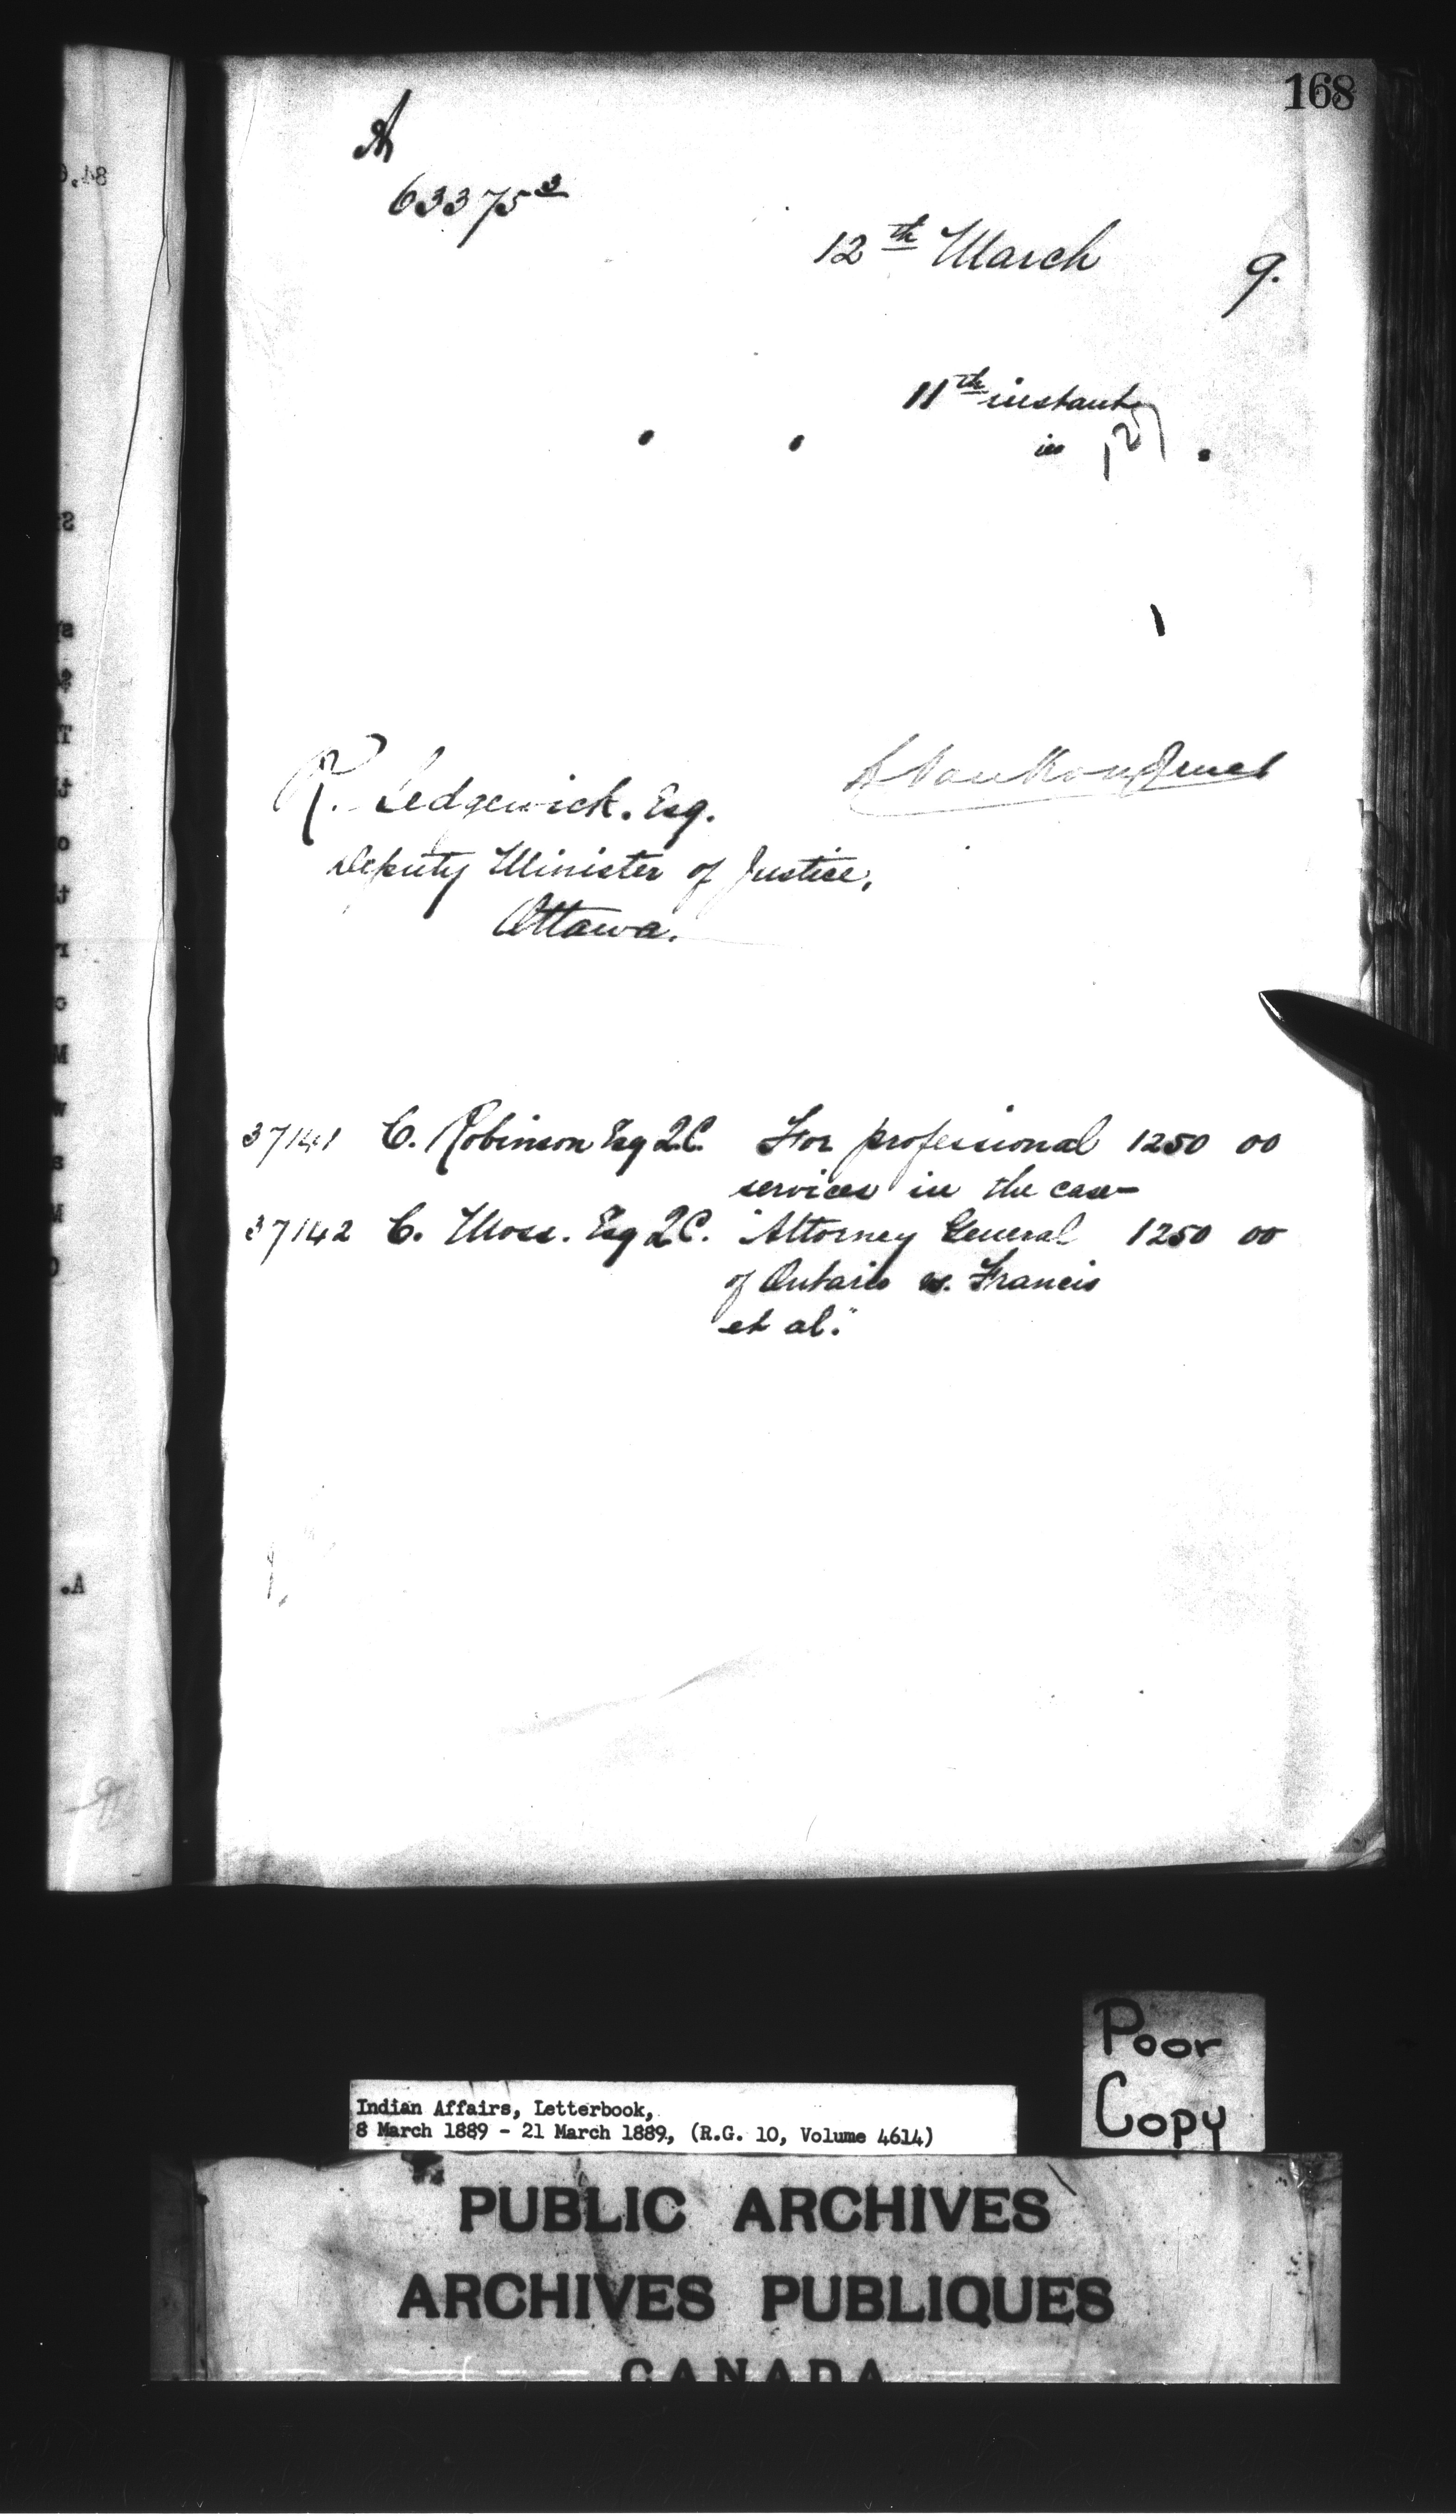 168
A
63375³
12th March 9.
11th instant
in 127
L. VanKoughnet
R. Sedgewick. Esq.
Deputy Minister of Justice,
Ottawa.
37141 C. Robinson Esq Q.C. For professional 1250 00
services in the case
37142 C. Moss. Esq Q.C. "Attorney General 1250 00
of Ontario vs. Francis
et al."
Poor
Copy
Indian Affairs, Letterbook,
8 March 1889 - 21 March 1889, (R.G. 10, Volume 4614)
PUBLIC ARCHIVES
ARCHIVES PUBLIQUES
CANADA